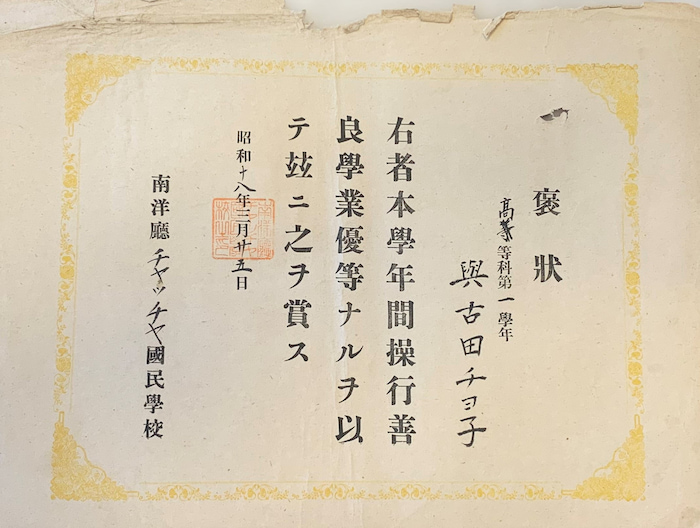 褒狀
高等科第一學年
與古田チヨ子
右者本學年間操行善
良學業優等ナルヲ以
テ玆ニ之ヲ賞ス
昭和十八年三月廿五日
南洋廳チャッチャ國民學校